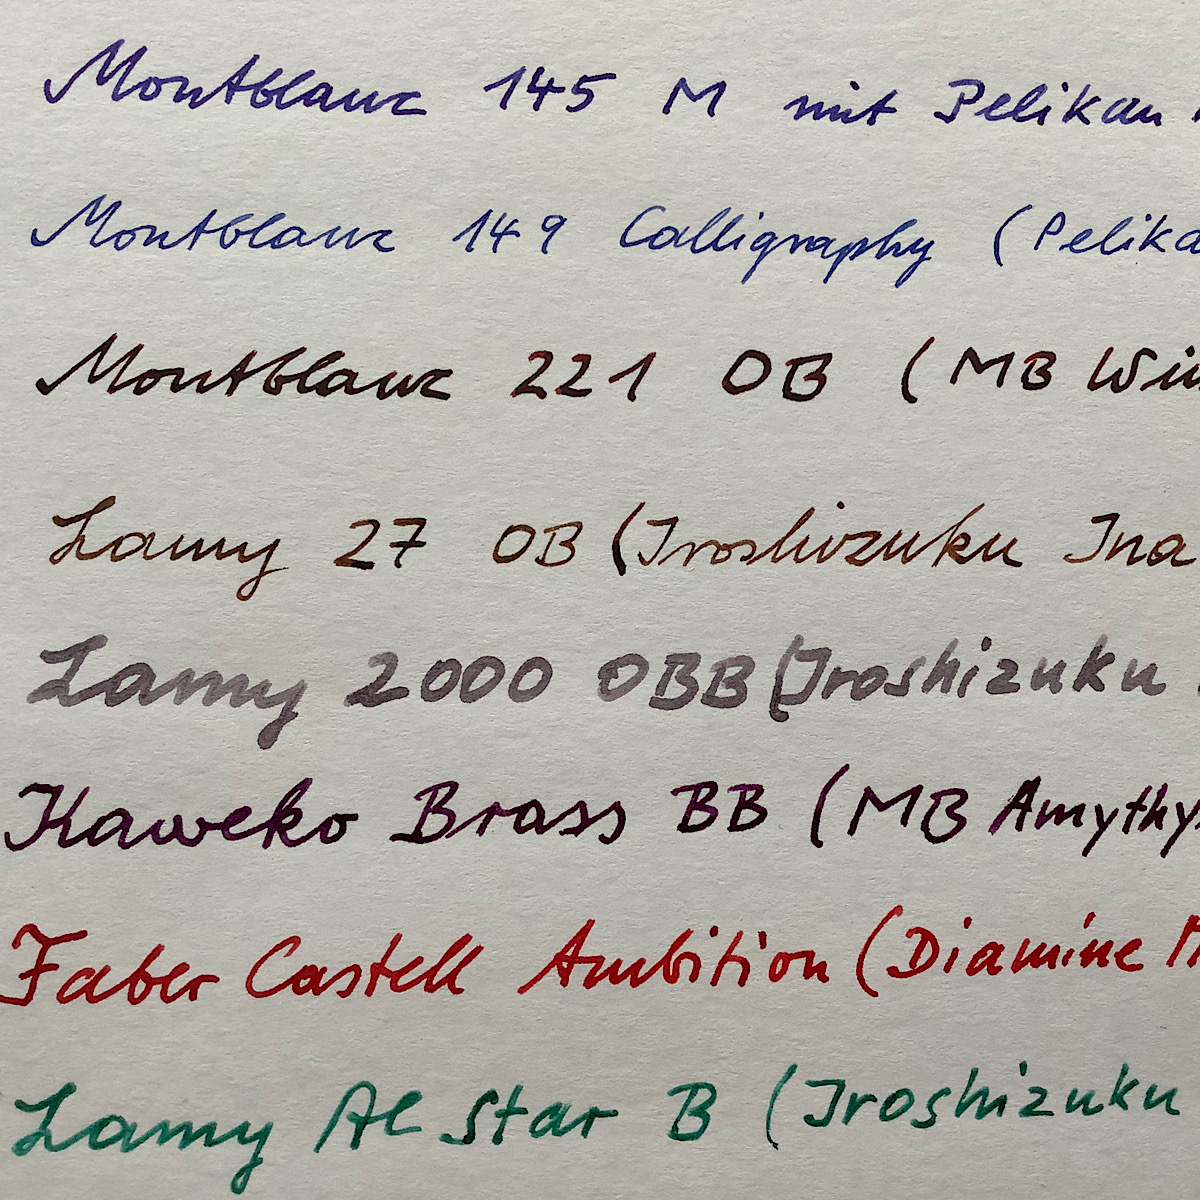 Montblanc 145 M mit Pelikan
Montblanc 149 Calligraphy (Pelika
Montblanc 221 OB (MB Win
Lamy 27 OB (Iroshizuku Ina
Lamy 2000 OBB (Iroshizuku
Kaweko Brass BB (MB Amythys
Faber Castell Ambition (Diamine
Lamy Al Star B (Iroshizuku